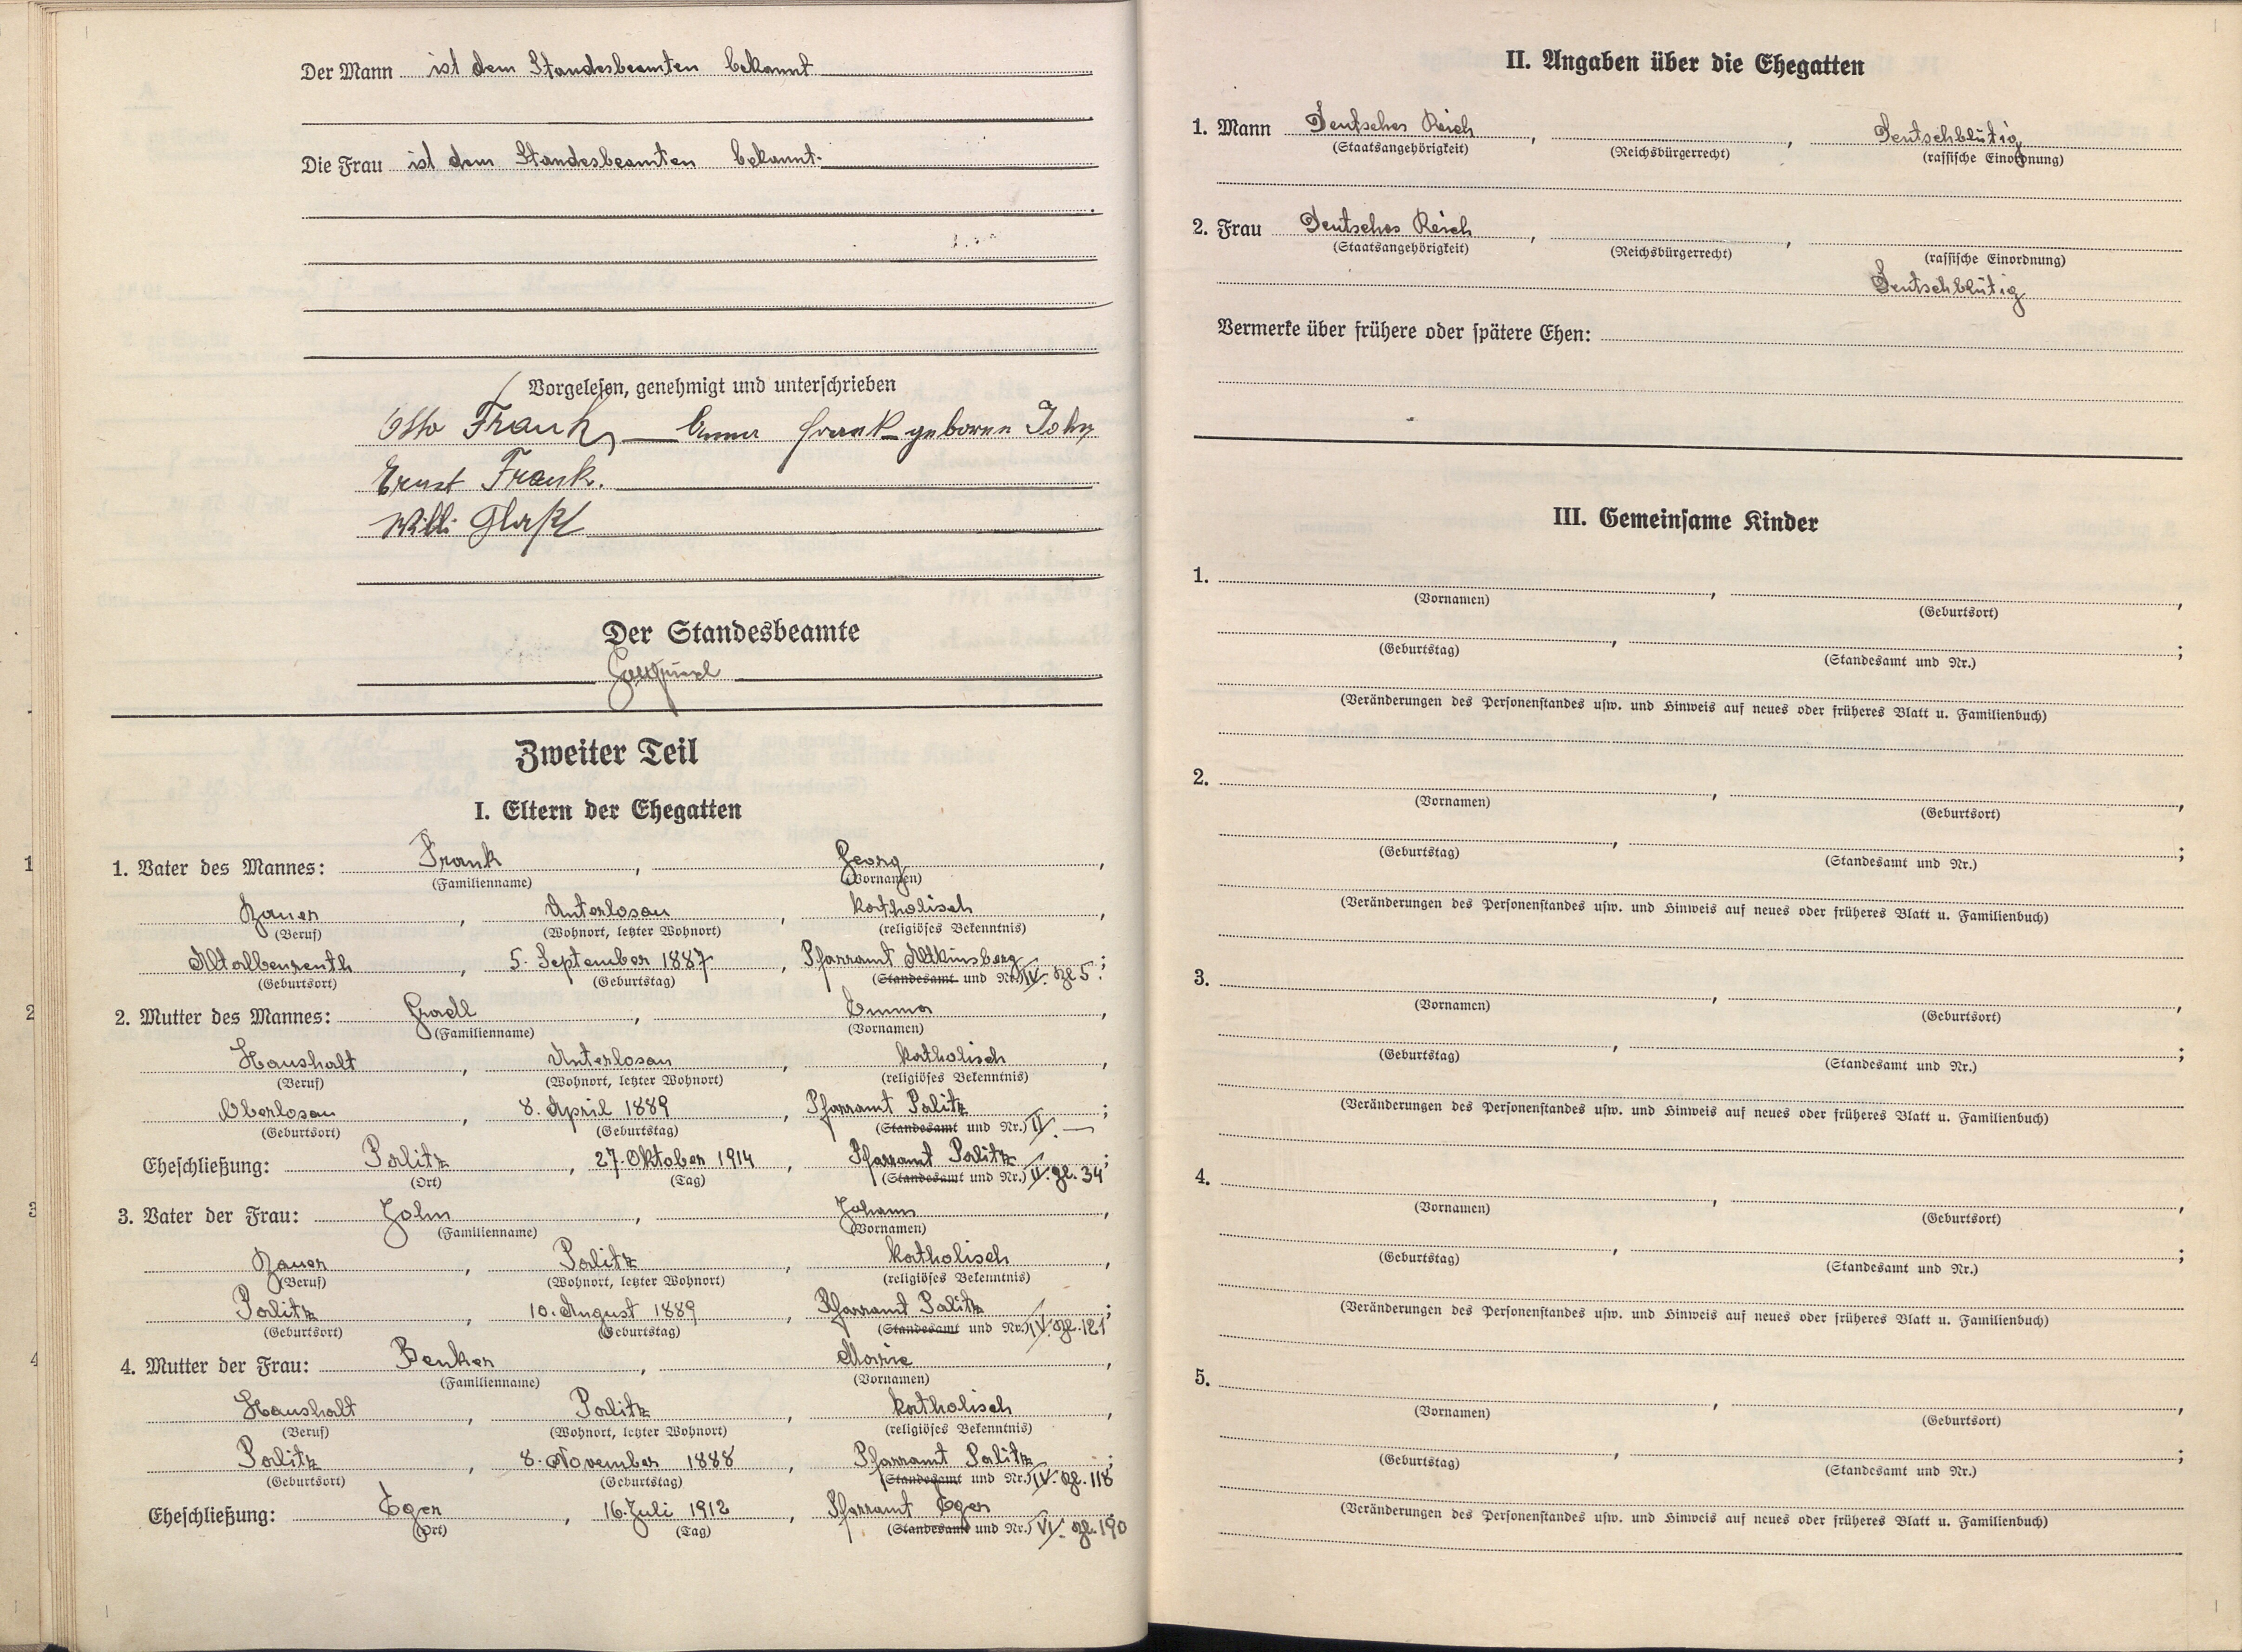 Der Mann ist dem Standesbeamten bekannt
Die Frau ist dem Standesbeamten bekannt.
Vorgelesen, genehmigt und unterschrieben
Otto Frank, Anna Frank geborene John
Ernst Frank.
Willi
Der Standesbeamte
Zweiter Teil
I. Eltern der Ehegatten
1. Vater des Mannes: Frank, Georg,
(Familienname) (Vornamen)
Bauer, Unterlosau, katholisch,
(Beruf) (Wohnort, letzter Wohnort) (religiöses Bekenntnis)
Altalbenreuth, 5. September 1887, Pfarramt Altkinsberg;
(Geburtsort) (Geburtstag) (Standesamt und Nr.) IV. Zl. 5.
2. Mutter des Mannes: Gradl, Emma,
(Familienname) (Vornamen)
Haushalt, Unterlosau, katholisch,
(Beruf) (Wohnort, letzter Wohnort) (religiöses Bekenntnis)
Oberlosau, 8. April 1889, Pfarramt Palitz;
(Geburtsort) (Geburtstag) (Standesamt und Nr.) II. —
Eheschließung: Palitz, 27. Oktober 1914, Pfarramt Palitz;
(Ort) (Tag) (Standesamt und Nr.) II. Zl. 34
3. Vater der Frau: John, Johann,
(Familienname) (Vornamen)
Bauer, Palitz, katholisch,
(Beruf) (Wohnort, letzter Wohnort) (religiöses Bekenntnis)
Palitz, 10. August 1889, Pfarramt Palitz;
(Geburtsort) (Geburtstag) (Standesamt und Nr.) IV. Zl. 121
4. Mutter der Frau: Benker, Marie,
(Familienname) (Vornamen)
Haushalt, Palitz, katholisch,
(Beruf) (Wohnort, letzter Wohnort) (religiöses Bekenntnis)
Palitz, 8. November 1888, Pfarramt Palitz;
(Geburtsort) (Geburtstag) (Standesamt und Nr.) IV. Zl. 118
Eheschließung: Eger, 16. Juli 1912, Pfarramt Eger
(Ort) (Tag) (Standesamt und Nr.) VI. Zl. 190
II. Angaben über die Ehegatten
1. Mann Deutsches Reich, , Deutschblütig
(Staatsangehörigkeit) (Reichsbürgerrecht) (rassische Einordnung)
2. Frau Deutsches Reich, ,
(Staatsangehörigkeit) (Reichsbürgerrecht) (rassische Einordnung)
Deutschblütig
Vermerke über frühere oder spätere Ehen:
III. Gemeinsame Kinder
1. , ,
(Vornamen) (Geburtsort)
, ;
(Geburtstag) (Standesamt und Nr.)
(Veränderungen des Personenstandes usw. und Hinweis auf neues oder früheres Blatt u. Familienbuch)
2. , ,
(Vornamen) (Geburtsort)
, ;
(Geburtstag) (Standesamt und Nr.)
(Veränderungen des Personenstandes usw. und Hinweis auf neues oder früheres Blatt u. Familienbuch)
3. , ,
(Vornamen) (Geburtsort)
, ;
(Geburtstag) (Standesamt und Nr.)
(Veränderungen des Personenstandes usw. und Hinweis auf neues oder früheres Blatt u. Familienbuch)
4. , ,
(Vornamen) (Geburtsort)
, ;
(Geburtstag) (Standesamt und Nr.)
(Veränderungen des Personenstandes usw. und Hinweis auf neues oder früheres Blatt u. Familienbuch)
5. , ,
(Vornamen) (Geburtsort)
, ;
(Geburtstag) (Standesamt und Nr.)
(Veränderungen des Personenstandes usw. und Hinweis auf neues oder früheres Blatt u. Familienbuch)